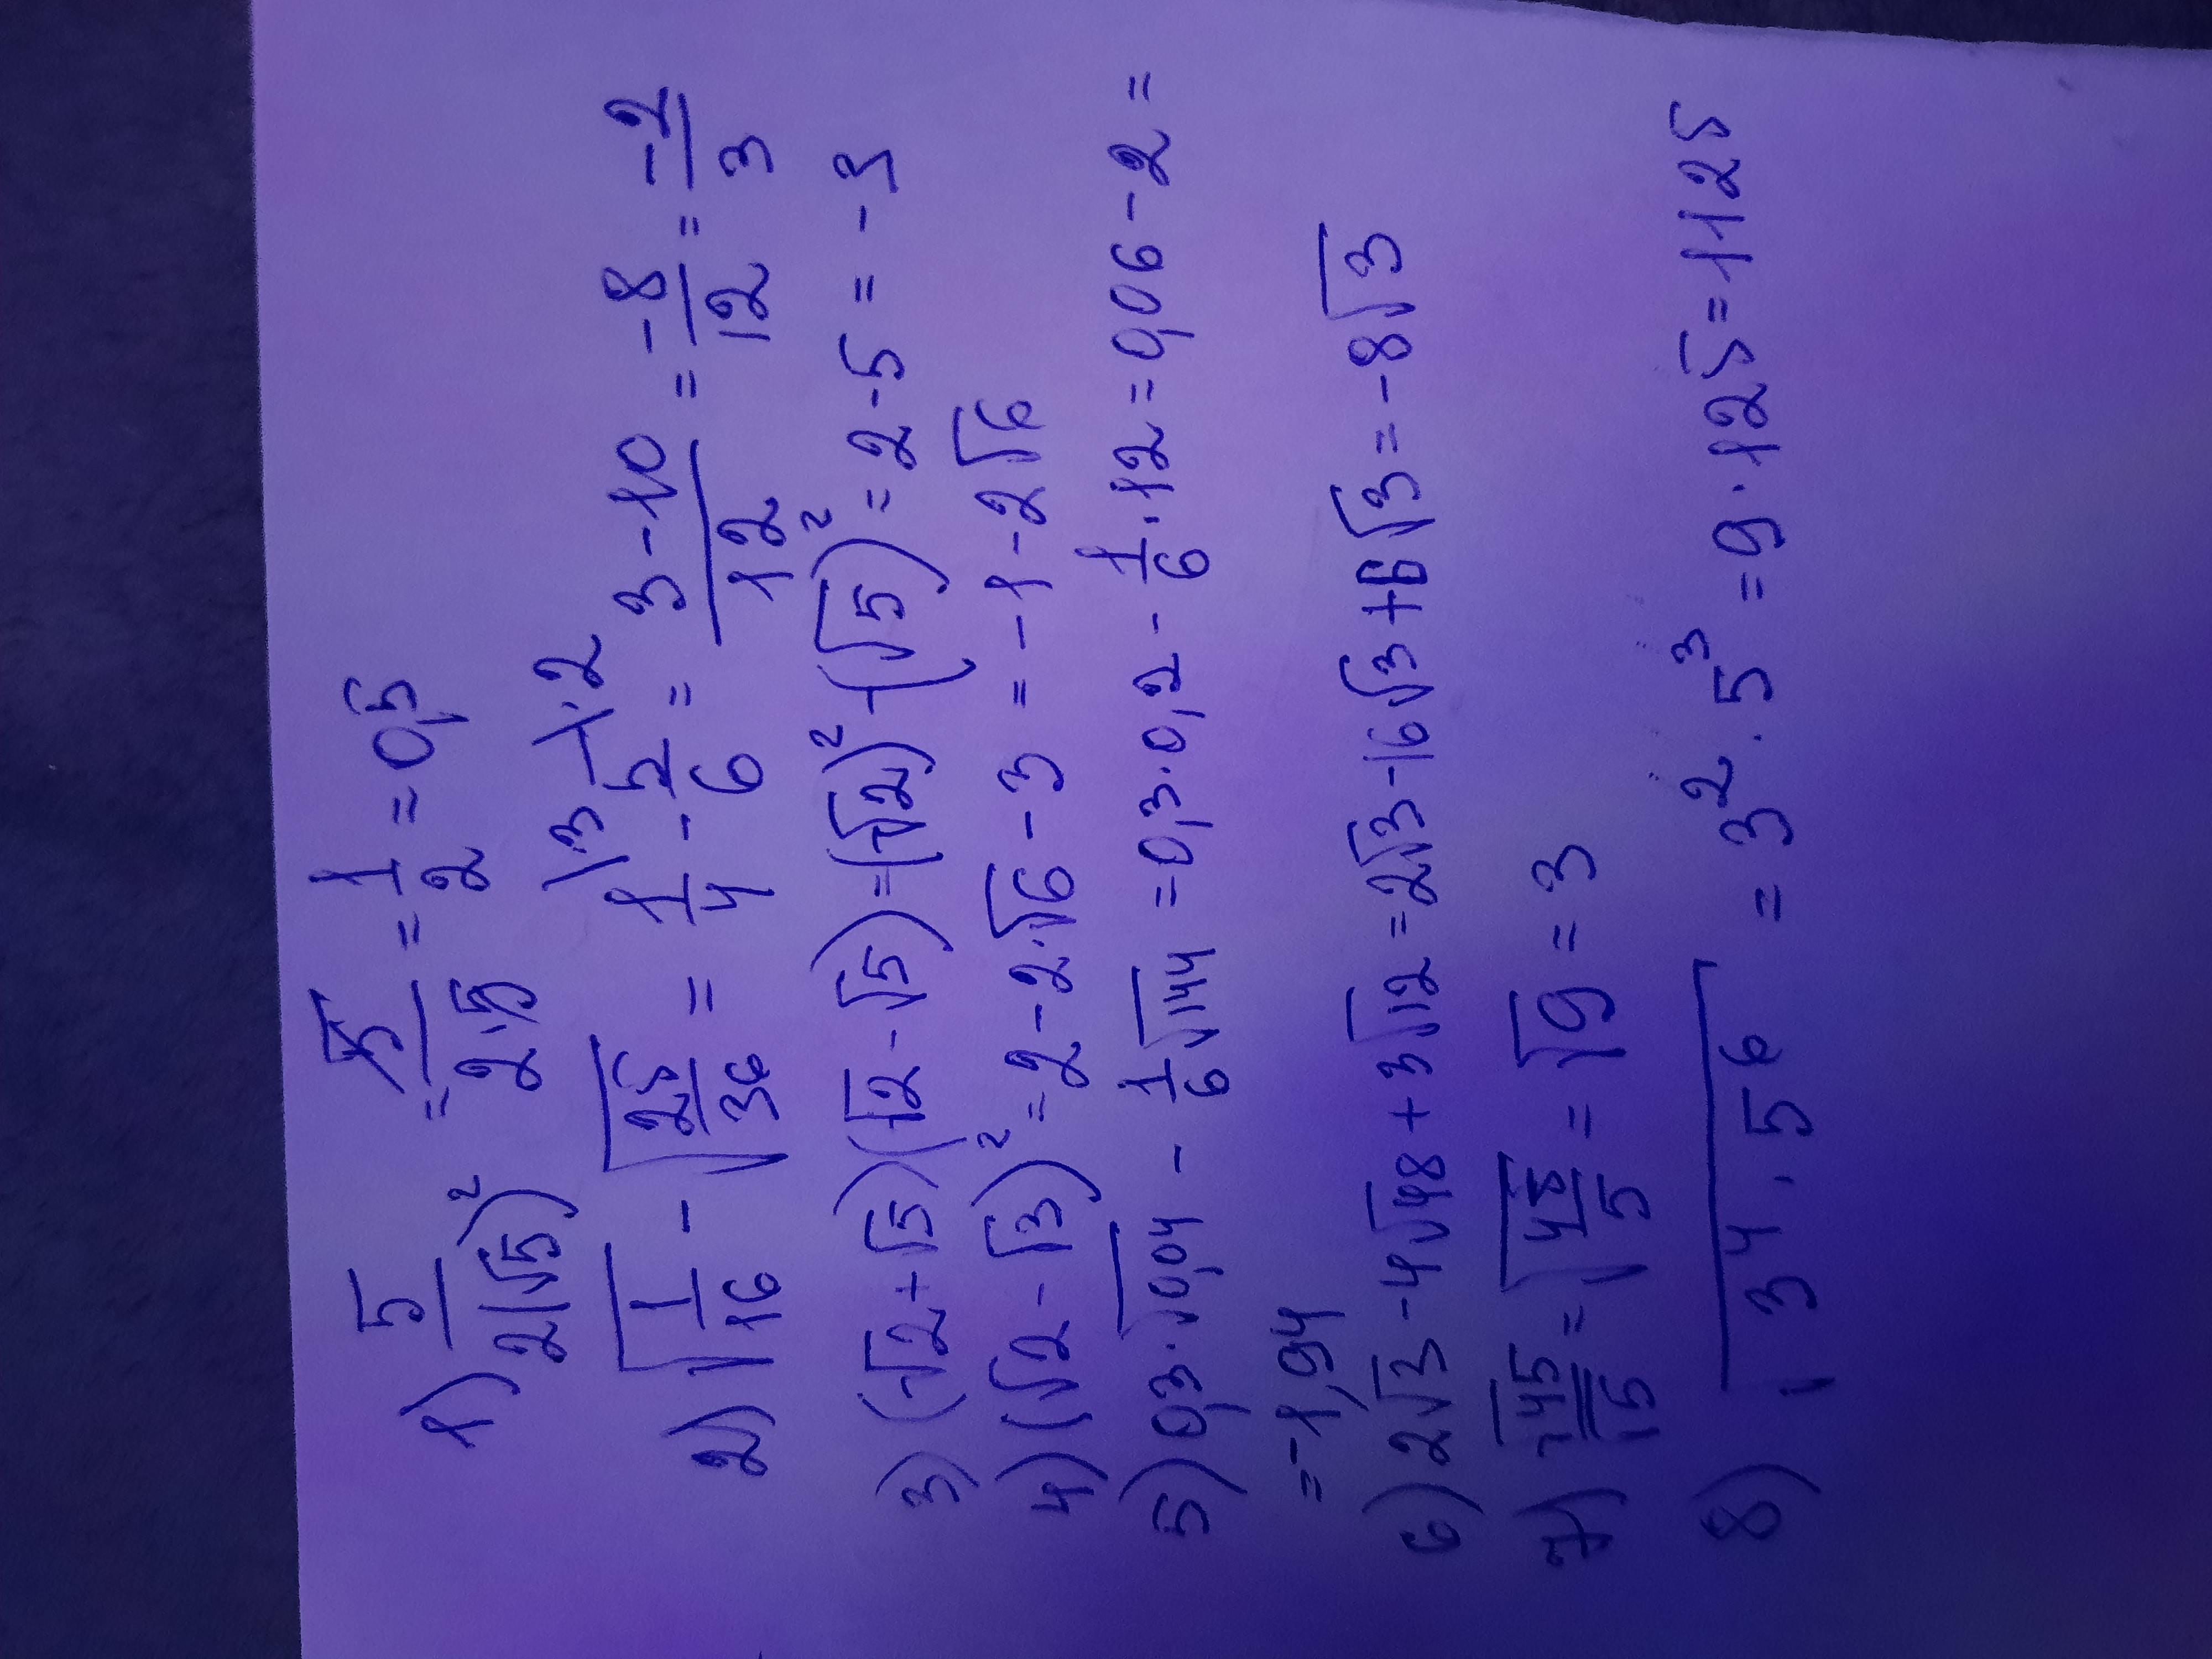 1) 5/2(√5)² = 5/2·5 = 1/2 = 0,5
2) √(1/16) - √(25/36) = 1/4\·3 - 5/6\·2 = 3-10/12 = -8/12 = -2/3
3) (√2+√5)(√2-√5) = (√2)² - (√5)² = 2-5 = -3
4) (√2-√3)² = 2-2·√6-3 = -1-2√6
5) 0,3·√0,04 - 1/6√144 = 0,3·0,2 - 1/6·12 = 0,06-2 =
= -1,94
6) 2√3 -4√48 + 3√12 = 2√3 -16√3 +6√3 = -8√3
7) √45/√5 = √(45/5) = √9 = 3
8) √(3⁴·5⁶) = 3²·5³ = 9·125 = 1125